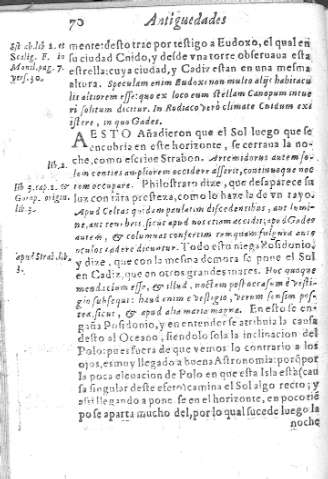 70 Antiguedades
mente: desto trae por testigo a Eudoxo, el qual en
su ciudad Cnido, y desde vna torre obseruaua esta
estrella: cuya ciudad, y Cadiz estan en una mesma
altura. Speculam enim Eudoxi non multo alijs habitacu
lis altiorem esse: qua ex loco eum stellam Canopum intue
ri solitum dicitur. In Rodiaco verò climate Cnidum exi
istere, in quo Gades.
A ESTO Añadieron que el Sol luego que se
encubria en este horizonte, se cerraua la no-
che, como escriue Strabon. Artemidorus autem so-
lem centies ampliorem occidere asserit, continuoque noc
tem occupare. Philostrato dize, que desaparece su
luz con tãta presteza, como lo haze la de vn rayo.
Apud Celtas
columnas, & confestim
culos cadere dicuntur. Todo esto niega Posidonio,
y dize, que con la mesma demora se pone el Sol
en Cadiz, que en otros grandes mares. Hoc quoque
mendacium esse, & illud, noctem post occasum è vesti-
gio subsequi: haud enim è vestigio, verum
& apud alia maria magna. En esto se en-
gaña Posidonio, y en entender se atribuia la causa
desto al Oceano, siendolo sola la inclinacion del
Polo: pues fuera de que vemos lo contrario a los
ojos, es muy llegado a buena Astronomia: porq̃ por
la poca eleuacion de Polo en que esta Isla està (cau
sa singular deste efeto) camina el Sol algo recto; y
assi llegando a ponerse en el horizonte, en poco tiẽ
po se aparta mucho del, por lo qual sucede luego la
noche
lib. 2. et
Scalig. F. in
Manil. pag. 7.
vers. 30.
lib. 2.
lib. 5. cap. 1. et
lib. 3.
apud Strab. lib.
3.